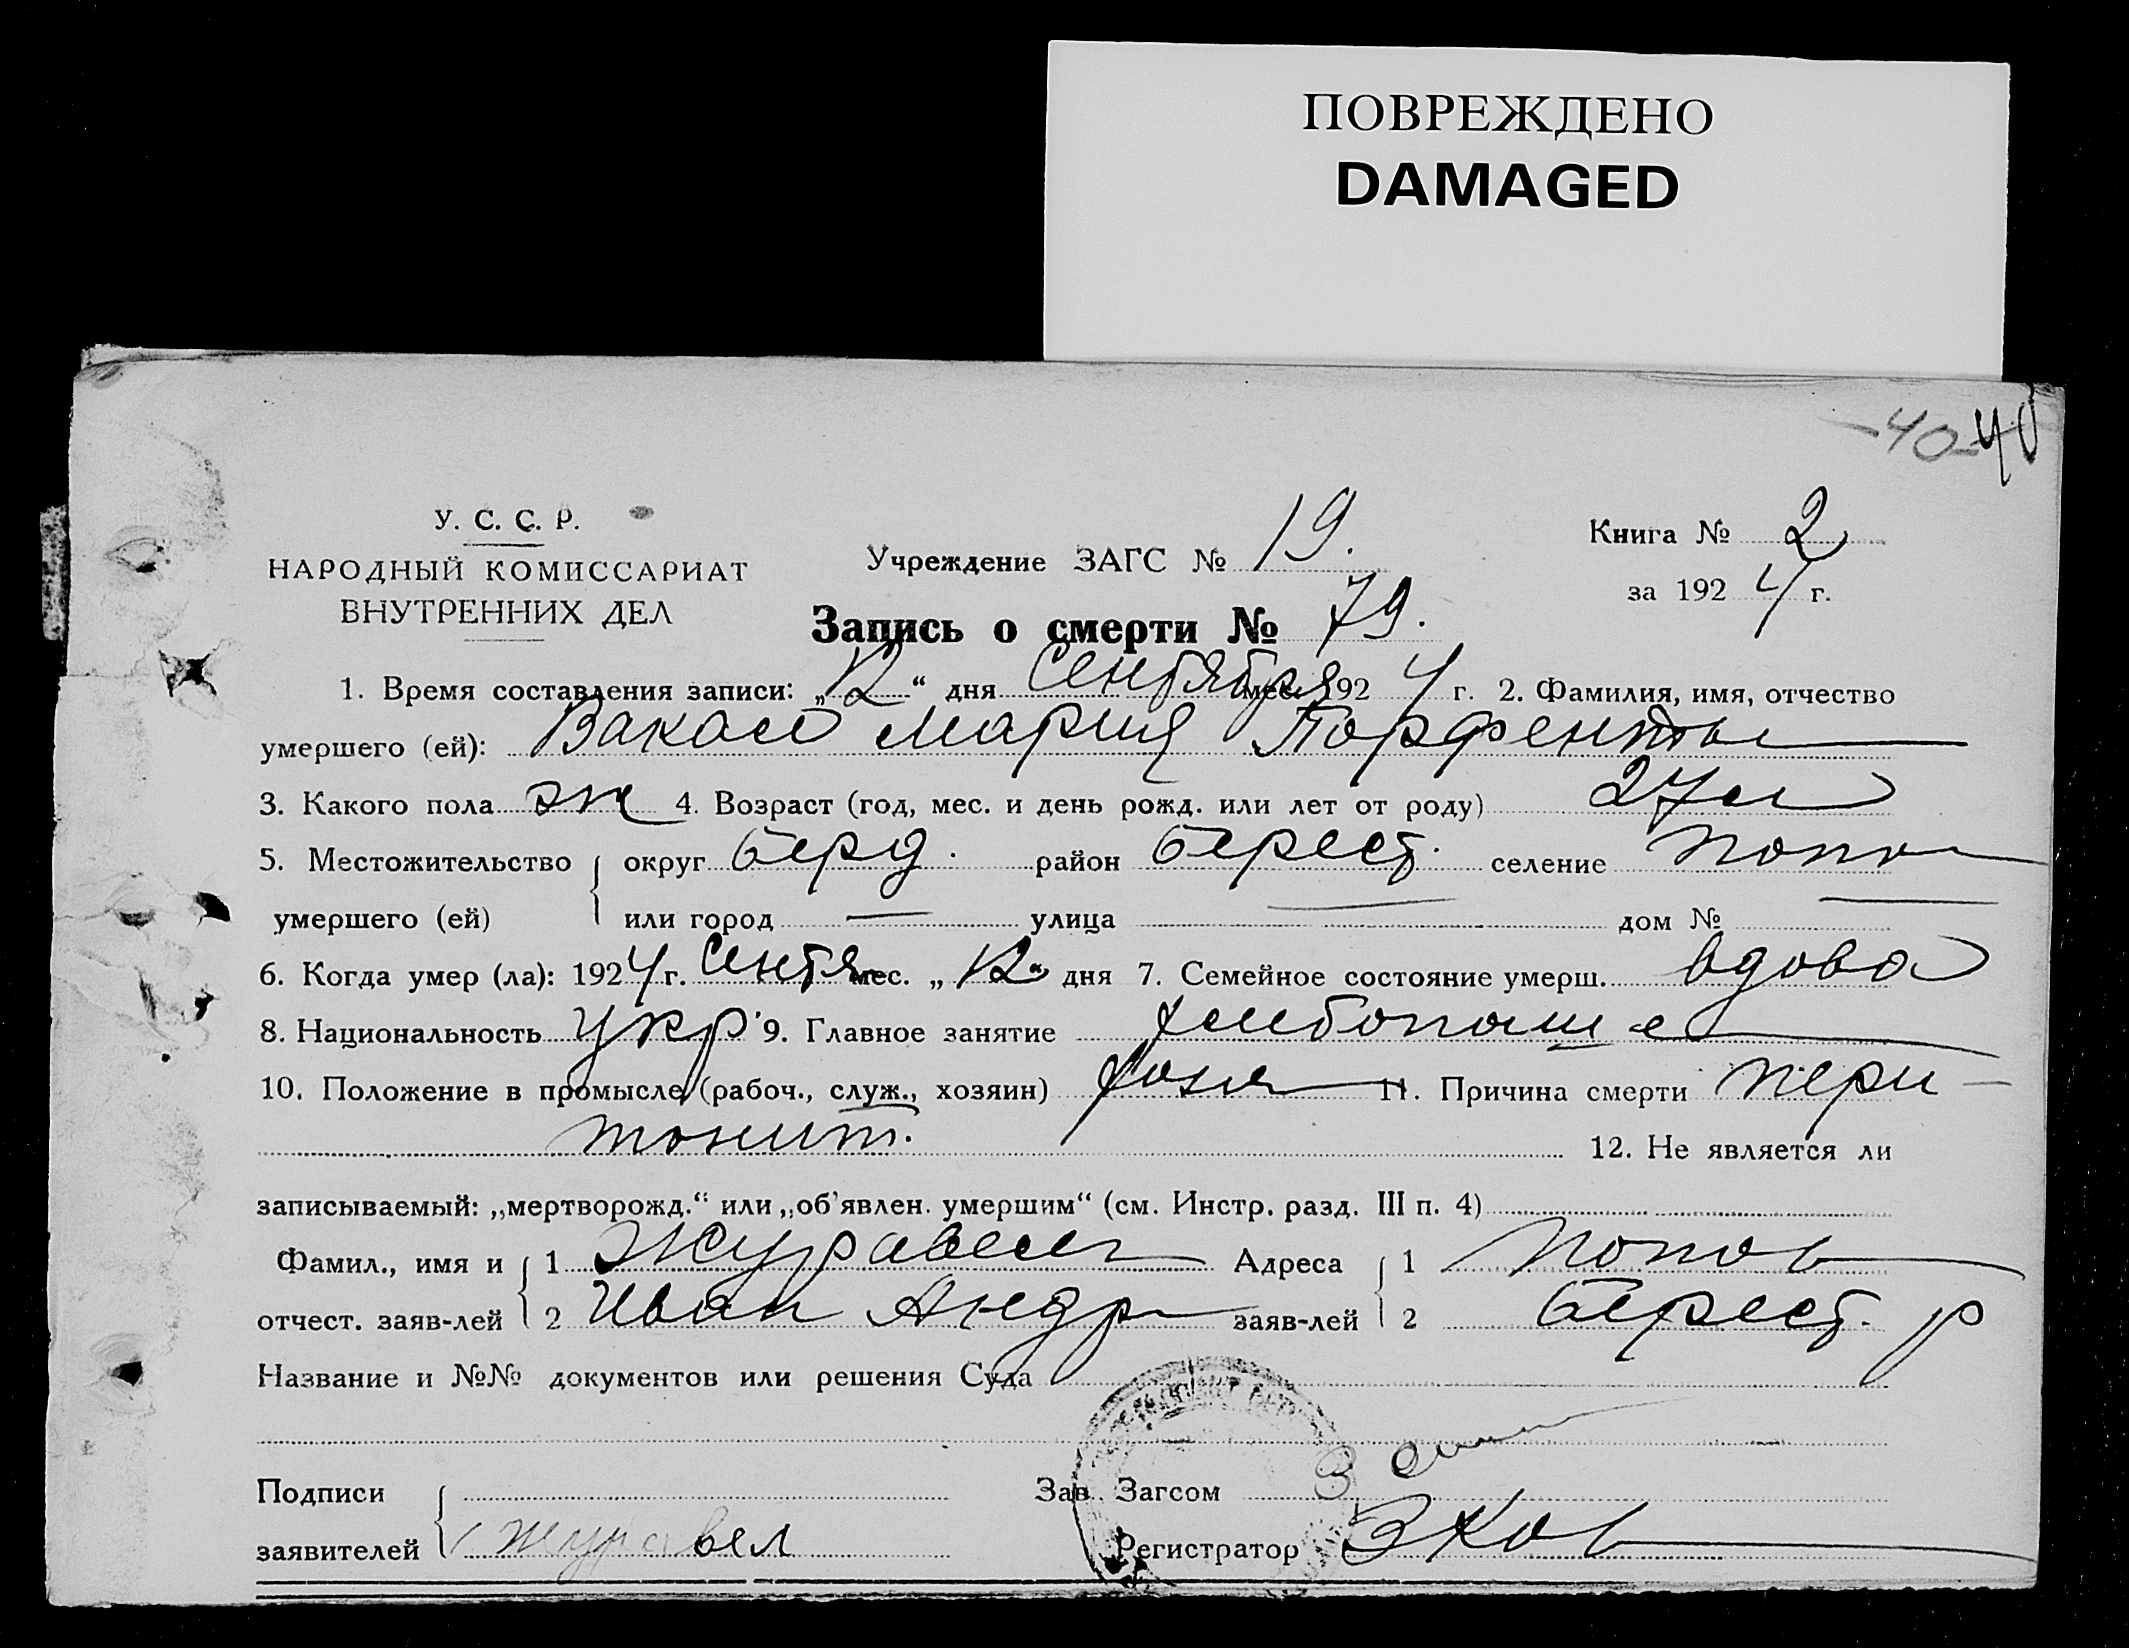 ПОВРЕЖДЕНО
DAMAGED
-40- 40
У. С. С. Р.
НАРОДНЫЙ КОМИССАРИАТ
ВНУТРЕННИХ ДЕЛ
Учреждение ЗАГС № 19.
Книга № 2
за 1924 г.
Запись о смерти № 79.
1. Время составления записи: „12“ дня Сентября мес. 1924 г. 2. Фамилия, имя, отчество
умершего (ей): Мария
3. Какого пола ж 4. Возраст (год, мес. и день рожд. или лет от роду) 27 л
5. Местожительство округ Берд. район Берест. селение
умершего (ей) или город — улица — дом № —
6. Когда умер (ла): 1924 г. Сентя мес. „12“ дня 7. Семейное состояние умерш. вдова
8. Национальность укр 9. Главное занятие хлебопаше
10. Положение в промысле (рабоч., служ., хозяин) хозя 11. Причина смерти пери-
тонит. 12. Не является ли
записываемый: „мертворожд.“ или „об'явлен. умершим“ (см. Инстр. разд. III п. 4)
Фамил., имя и 1 Журавель Адреса 1 Попов
отчест. заяв-лей 2 Иван Андр заяв-лей 2 Берест. р
Название и №№ документов или решения Суда
Подписи Зав. Загсом
заявителей Журавел Регистратор